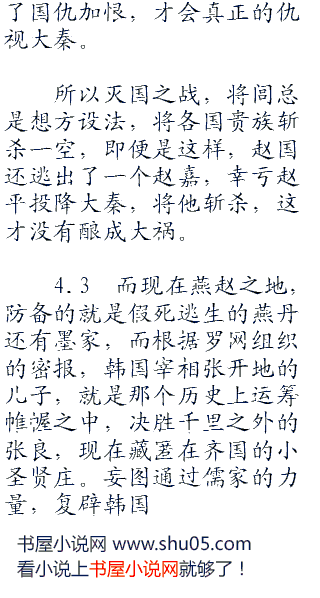 了国仇加恨，才会真正的仇
视大秦。
所以灭国之战，将闾总
是想方设法，将各国贵族斩
杀一空，即便是这样，赵国
还逃出了一个赵嘉，幸亏赵
平投降大秦，将他斩杀，这
才没有酿成大祸。
4.3 而现在燕赵之地，
防备的就是假死逃生的燕丹
还有墨家，而根据罗网组织
的密报，韩国宰相张开地的
儿子，就是那个历史上运筹
帷幄之中，决胜千里之外的
张良，现在藏匿在齐国的小
圣贤庄。妄图通过儒家的力
量，复辟韩国
书屋小说网 www.shu05.com
看小说上书屋小说网就够了！